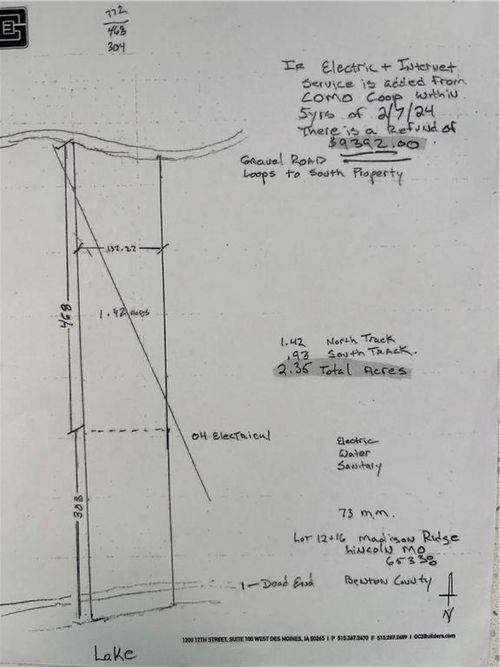 772
468
304
If Electric + Internet
Service is added from
COMO Coop within
5yrs of 2/7/24
There is a Refund of
$9392.00
Gravel ROAD
Loops to South Property
137.27
468
1.42 acres
1.42 North Track
.93 South TRACK.
2.35 Total Acres
OH Electrical
Electric
Water
Sanitary
303
73 mm.
Lot 12+16 Madison Ridge
Lincoln MO
65338
1-Dead End
Benton County
N
1200 12TH STREET, SUITE 100 WEST DES MOINES, IA 50265 | P 515.267.2470 F 515.267.2489 | GCSBuilders.com
Lake